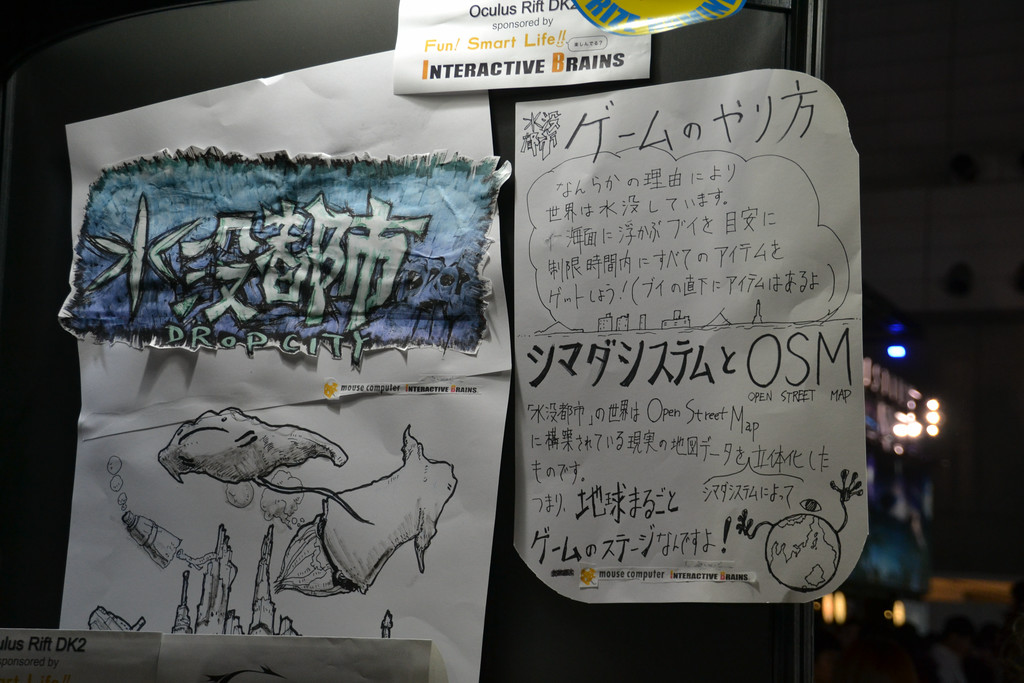 Oculus Rift DK2
sponsored by
Fun! Smart Life!!
INTERACTIVE BRAINS
水没都市
DROP CITY
mouse computer INTERACTIVE BRAINS
水没
都市
ゲームのやり方
なんらかの理由により
世界は水没しています。
海面に浮かぶブイを目安に
制限時間内にすべてのアイテムを
ゲットしよう!(ブイの直下にアイテムはあるよ)
シマダシステムとOSM
OPEN STREET MAP
「水没都市」の世界は Open Street Map
に構築されている現実の地図データを立体化した
ものです。
シマダシステムによって
つまり、地球まるごと
ゲームのステージなんですよ!
mouse computer INTERACTIVE BRAINS
ulus Rift DK2
sponsored by